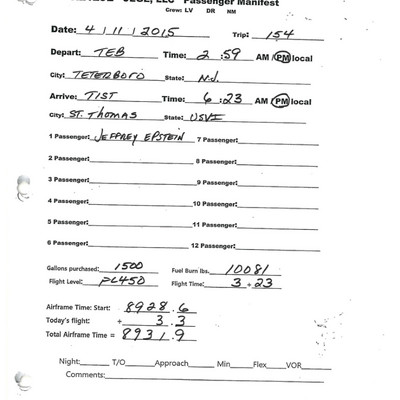 LLC Passenger Manifest
Crew: LV DR NM
Date: 4 / 11 / 2015 Trip: 154
Depart: TEB Time: 2 :59 AM / PM local
City: TETERBORO State: N.J.
Arrive: TIST Time: 6 : 23 AM / PM local
City: ST. THOMAS State: USVI
1 Passenger: JEFFREY EPSTEIN 7 Passenger:
2 Passenger: 8 Passenger:
3 Passenger: 9 Passenger:
4 Passenger: 10 Passenger:
5 Passenger: 11 Passenger:
6 Passenger: 12 Passenger:
Gallons purchased: 1500 Fuel Burn lbs. 10081
Flight Level: FL450 Flight Time: 3 + 23
Airframe Time: Start: 8928.6
Today's flight: + 3.3
Total Airframe Time = 8931.9
Night: T/O Approach Min Flex VOR
Comments: